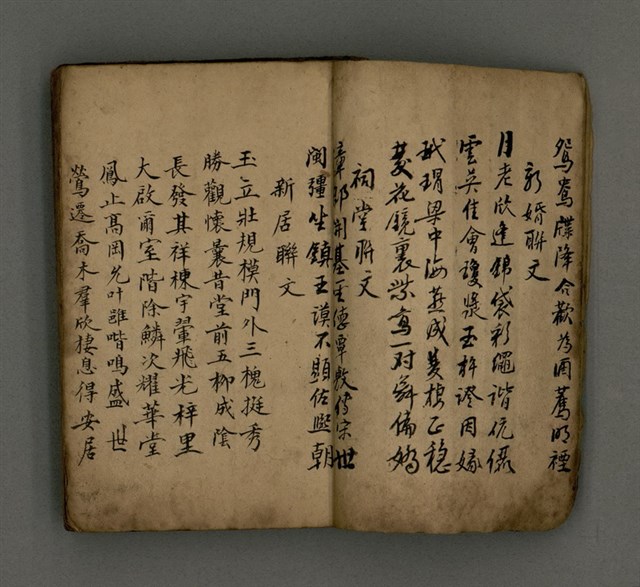 鴛鴦牒降合歡為酒薦明禋
新婚聯文
月老欣逢錦袋彩繩諧伉儷
雲英佳會瓊漿玉杵證因嫁
玳瑁梁中海燕成雙棲正穩
菱花鏡裏紫鸞一对舞偏嬌
祠堂聯文
章邦荆基王德覃敷傳宗世
閩疆坐鎮王謨丕顯佐熙朝
新居聯文
玉立壯規模門外三槐挺秀
勝觀懷曩昔堂前五柳成陰
長發其祥棟宇翬飛光梓里
大啟爾室階除鱗次耀華堂
鳳止高岡允叶雝喈鳴盛世
鶯遷喬木羣欣棲息得安居